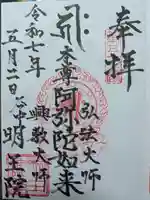 奉拝
弘法大師
本尊阿弥陀如来
興教大師
令和七年
五月二日
明王院